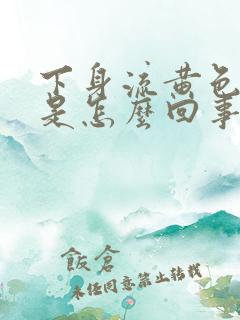 下身流黄色
是怎麼回事
飯倉
未经同意禁止转载